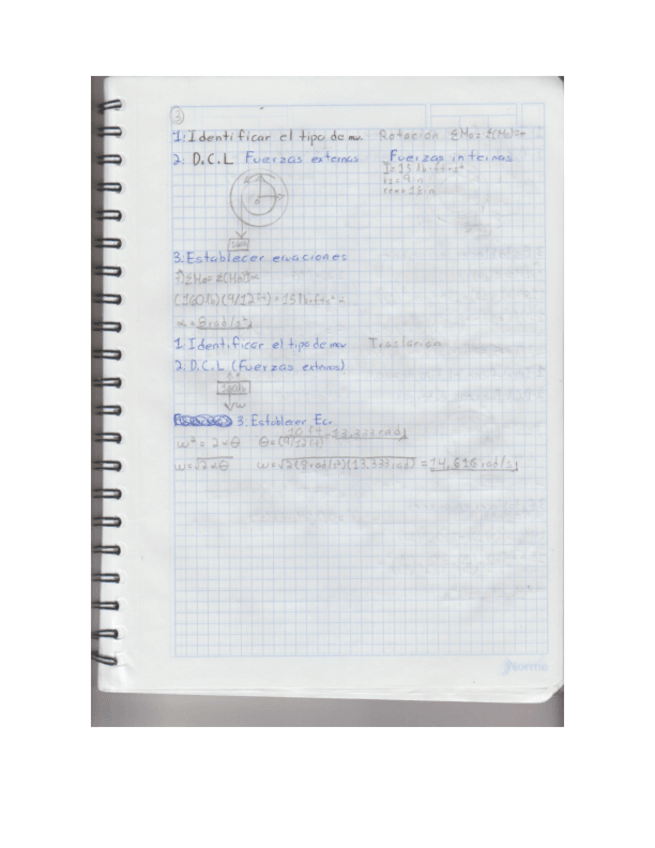 3
1: Identificar el tipo de mv. Rotación ΣMo = Σ(Mo)
2: D.C.L Fuerzas externas Fuerzas internas
I=15 lb·ft·s²
3: Establecer ecuaciones
ΣMo = Σ(Mo)
(160lb)(9/12ft) = 15lb·ft·s² α
α = 8rad/s²
1. Identificar el tipo de mov Traslación
2. D.C.L (Fuerzas externas)
160lb
W
3: Establecer Ec.
ω² = 2αθ θ = 10ft/(9/12ft) = 13.333rad
ω=√2αθ ω=√2(8rad/s²)(13.333rad) = 14.616rad/s
norma